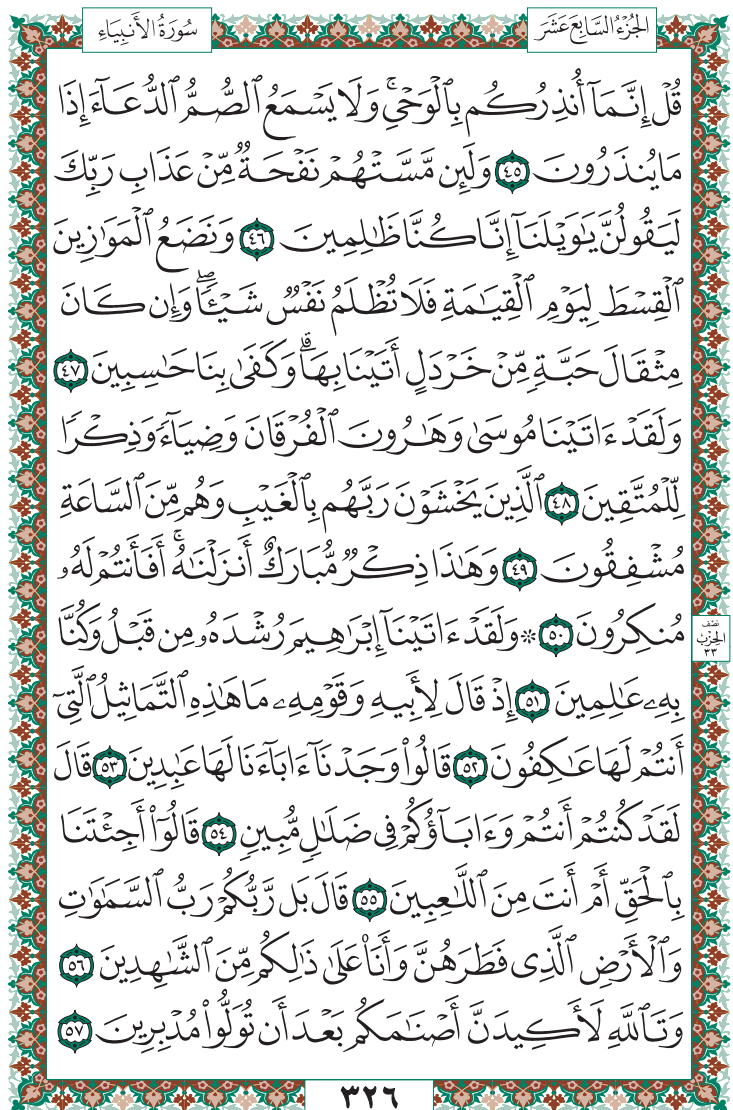 الجُزْءُ السَّابِعَ عَشَرَ
سُورَةُ الأَنبِيَاءِ
قُلْ إِنَّمَآ أُنذِرُكُم بِٱلْوَحْىِ ۚ وَلَا يَسْمَعُ ٱلصُّمُّ ٱلدُّعَآءَ إِذَا
مَا يُنذَرُونَ ٤٥ وَلَئِن مَّسَّتْهُمْ نَفْحَةٌ مِّنْ عَذَابِ رَبِّكَ
لَيَقُولُنَّ يَـٰوَيْلَنَآ إِنَّا كُنَّا ظَـٰلِمِينَ ٤٦ وَنَضَعُ ٱلْمَوَٰزِينَ
ٱلْقِسْطَ لِيَوْمِ ٱلْقِيَـٰمَةِ فَلَا تُظْلَمُ نَفْسٌ شَيْـًٔا ۖ وَإِن كَانَ
مِثْقَالَ حَبَّةٍ مِّنْ خَرْدَلٍ أَتَيْنَا بِهَا ۗ وَكَفَىٰ بِنَا حَـٰسِبِينَ ٤٧
وَلَقَدْ ءَاتَيْنَا مُوسَىٰ وَهَـٰرُونَ ٱلْفُرْقَانَ وَضِيَآءً وَذِكْرًا
لِّلْمُتَّقِينَ ٤٨ ٱلَّذِينَ يَخْشَوْنَ رَبَّهُم بِٱلْغَيْبِ وَهُم مِّنَ ٱلسَّاعَةِ
مُشْفِقُونَ ٤٩ وَهَـٰذَا ذِكْرٌ مُّبَارَكٌ أَنزَلْنَـٰهُ ۚ أَفَأَنتُمْ لَهُۥ
مُنكِرُونَ ٥٠ ۞ وَلَقَدْ ءَاتَيْنَآ إِبْرَٰهِيمَ رُشْدَهُۥ مِن قَبْلُ وَكُنَّا
بِهِۦ عَـٰلِمِينَ ٥١ إِذْ قَالَ لِأَبِيهِ وَقَوْمِهِۦ مَا هَـٰذِهِ ٱلتَّمَاثِيلُ ٱلَّتِىٓ
أَنتُمْ لَهَا عَـٰكِفُونَ ٥٢ قَالُوا۟ وَجَدْنَآ ءَابَآءَنَا لَهَا عَـٰبِدِينَ ٥٣ قَالَ
لَقَدْ كُنتُمْ أَنتُمْ وَءَابَآؤُكُمْ فِى ضَلَـٰلٍ مُّبِينٍ ٥٤ قَالُوٓا۟ أَجِئْتَنَا
بِٱلْحَقِّ أَمْ أَنتَ مِنَ ٱللَّـٰعِبِينَ ٥٥ قَالَ بَل رَّبُّكُمْ رَبُّ ٱلسَّمَـٰوَٰتِ
وَٱلْأَرْضِ ٱلَّذِى فَطَرَهُنَّ وَأَنَا۠ عَلَىٰ ذَٰلِكُم مِّنَ ٱلشَّـٰهِدِينَ ٥٦
وَتَٱللَّهِ لَأَكِيدَنَّ أَصْنَـٰمَكُم بَعْدَ أَن تُوَلُّوا۟ مُدْبِرِينَ ٥٧
نصف
الحِزْب
٣٣
٣٢٦